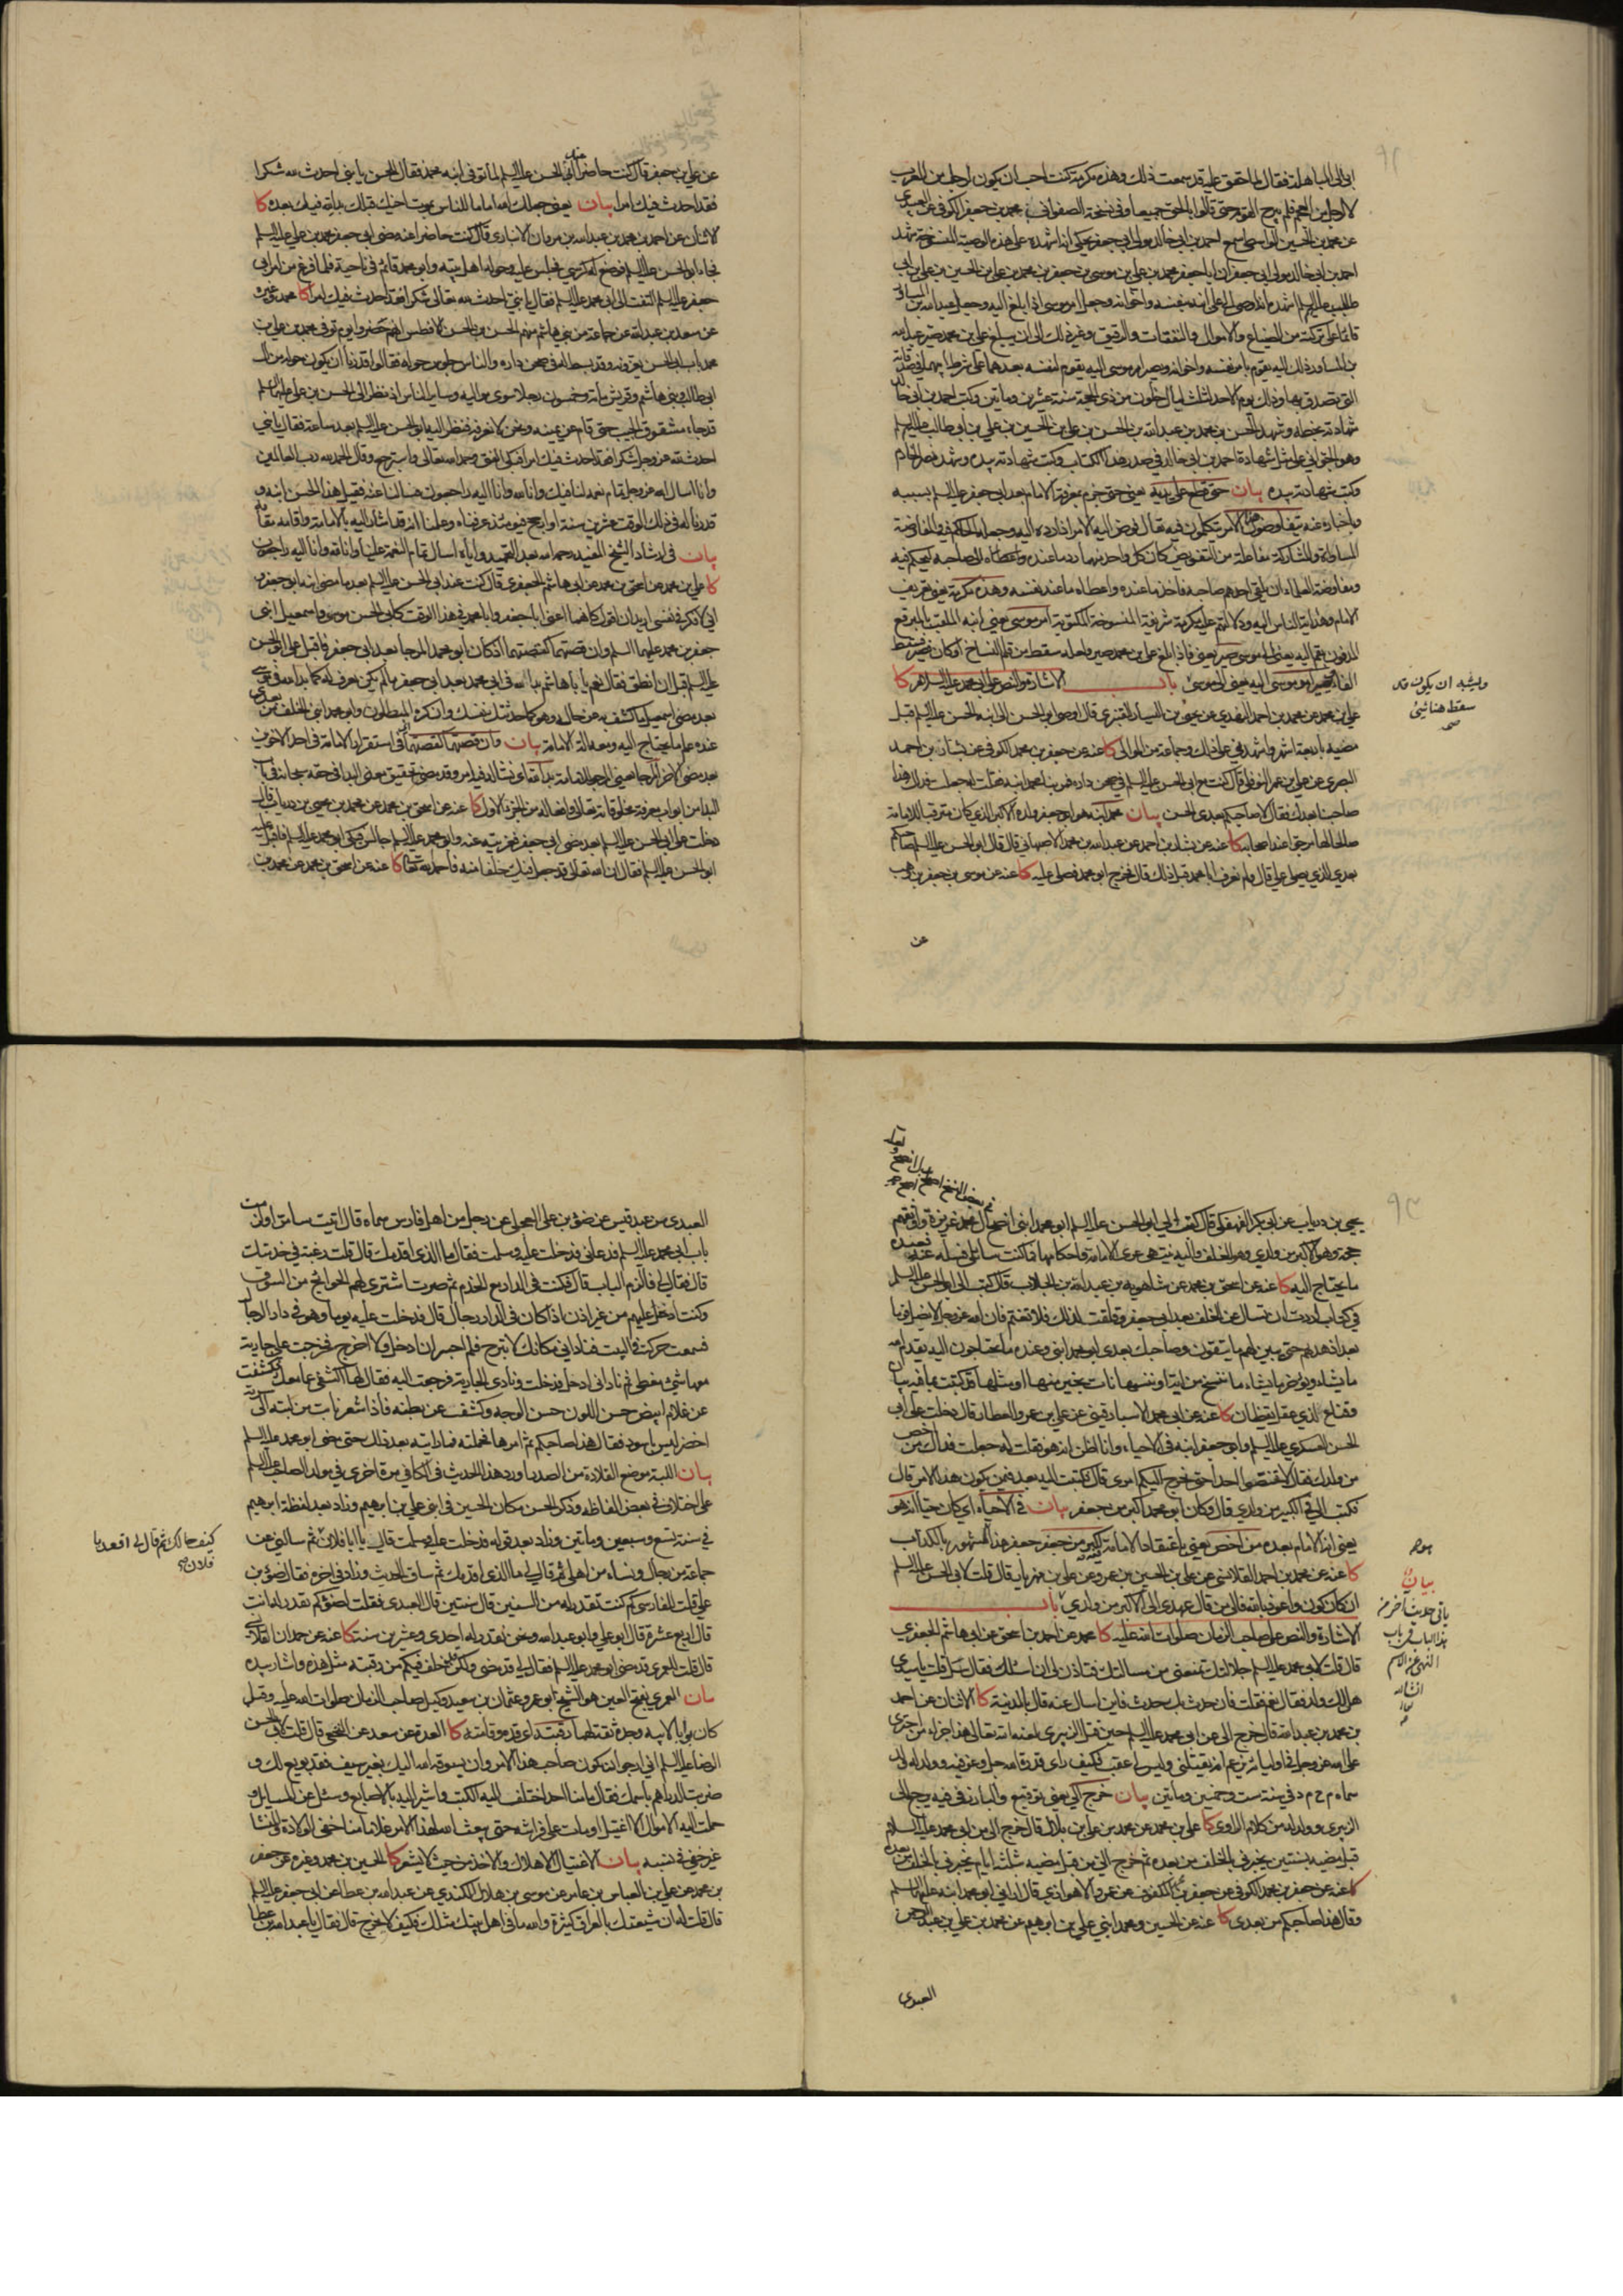 ابي الى المباهلة فقال لما حقق عليه قد سمعت ذلك وهذه مكرمة كنت احب ان يكون لرجل من العرب
لا لرجل من العجم فلم يبرح القوم حتى قالوا بالحق جميعا وفي نسخة الصفواني محمد بن جعفر الكوفي عن
عن محمد بن الحسين الواسطي سمع احمد بن ابي خالد مولى ابي جعفر يحكي انه اشهده على هذه الوصية المنسوخة شهد
احمد بن ابي خالد مولى ابي جعفر ان ابا جعفر محمد بن علي بن موسى بن جعفر بن محمد بن علي بن الحسين بن علي بن ابي
طالب عليهم السلم اشهده انه اوصى الى علي ابنه بنفسه واخواته وجعل امر موسى اذا بلغ اليه وجعل عبد الله بن المساور
قائما على تركته من الضياع والاموال والنفقات والرقيق وغير ذلك الى ان يبلغ علي بن محمد صير عبد الله
بن المساور ذلك اليه يقوم بامر نفسه واخواته ويصير امر موسى اليه يقوم لنفسه بعدهما على شرط ابيهما في صدقاته
التي تصدق بها وذلك يوم الاحد لثلث ليال خلون من ذي الحجة سنة عشرين ومأتين وكتب احمد بن ابي خالد
شهادته بخطه وشهد الحسن بن محمد بن عبد الله بن الحسن بن علي بن الحسين بن علي بن ابي طالب عليهم السلم
وهو الجواني على مثل شهادة احمد بن ابي خالد في صدر هذا الكتاب وكتب شهادته بيده وشهد نصر الخادم
وكتب شهادته بيده بيان حتى قطع على ابيه يعني حتى جزم بمعرفة الامام بعد ابي جعفر عليه السلم بسببه
وباخباره عنه يتفاوضون هذا الامر يتكلمون فيه يقال فوض اليه الامر اذا رده اليه وجعله الحاكم فيه والمفاوضة
المساواة والمشاركة مفاعلة من التفويض كان كل واحد منهما رد ما عنده واعطاه الى صاحبه ليحكم فيه
ومفاوضة العلماء ان يلقى احدهم صاحبه فاخذ ما عنده واعطاه ما عند نفسه وهذه مكرمة يعني تعريف
الامام وهداية الناس اليه ودلالتهم عليه مكرمة شريفة المنسوخة المكتوبة امر موسى يعني ابنه الملقب بالمبرقع
المدفون بقم اليه يعني الى موسى صير يعني فاذا بلغ علي بن محمد صير ولعله سقط من قلم النساخ او كان فصير فسقط
الفاء ويصير امر موسى اليه يعني الى موسى باب الاشارة والنص على ابي محمد عليه السلام كا
علي بن محمد عن محمد بن احمد النهدي عن يحيى بن اليسار القنبري قال اوصى ابو الحسن الى ابنه الحسن عليه السلم قبل
مضيه باربعة اشهر واشهدني على ذلك وجماعة من الموالي كا عنه عن جعفر بن محمد الكوفي عن بشار بن احمد
البصري عن علي بن عمر النوفلي قال كنت مع ابي الحسن عليه السلم في صحن داره فمر بنا محمد ابنه فقلت له جعلت فداك هذا
صاحبنا بعدك فقال لا صاحبكم بعدي الحسن بيان محمد ابنه هو ابو جعفر ولده الاكبر الذي كان مترقبا للامامة
صالحا لها مرجى عند اصحابه كا عنه عن بشار بن احمد عن عبد الله بن محمد الاصبهاني قال قال ابو الحسن عليه السلم صاحبكم
بعدي الذي يصلي علي قال ولم نعرف ابا محمد قبل ذلك قال فخرج ابو محمد فصلى عليه كا عنه عن موسى بن جعفر بن وهب
ويشبه ان يكون قد
سقط هنا شيئ
صح
عن
عن علي بن جعفر قال كنت حاضرا ابا الحسن عليه السلم لما توفي ابنه محمد فقال للحسن يا بني احدث لله شكرا
فقد احدث فيك امرا بيان يعني جعلك الله اماما للناس بموت اخيك قبلك بدا لله فيك بعده كا
الاثنان عن احمد بن محمد بن عبد الله بن مروان الانباري قال كنت حاضرا عند مضي ابي جعفر محمد بن علي عليه السلم
فجاء ابو الحسن عليه السلم فوضع له كرسي فجلس عليه وحوله اهل بيته وابو محمد قائم في ناحية فلما فرغ من امر ابي
جعفر عليه السلم التفت الى ابي محمد عليه السلم فقال يا بني احدث لله تعالى شكرا فقد احدث فيك امرا كا محمد وغيره
عن سعد بن عبد الله عن جماعة من بني هاشم منهم الحسن بن الحسن الافطس انهم حضروا يوم توفي محمد بن علي بن
محمد باب ابي الحسن يعزونه وقد بسط له في صحن داره والناس جلوس حوله فقالوا قدرنا ان يكون حوله من آل
ابي طالب وبني هاشم وقريش مأة وخمسون رجلا سوى مواليه وساير الناس اذ نظر الى الحسن بن علي عليهما السلم
قد جاء مشقوق الجيب حتى قام عن يمينه ونحن لا نعرفه فنظر اليه ابو الحسن عليه السلم بعد ساعة فقال يا بني
احدث لله عز وجل شكرا فقد احدث فيك امرا فبكى الفتى وحمد الله تعالى واسترجع وقال الحمد لله رب العالمين
وانا اسأل الله عز وجل تمام نعمه لنا فيك وانا لله وانا اليه راجعون فسالنا عنه فقيل هذا الحسن ابنه و
قدرنا له في ذلك الوقت عشرين سنة او ارجح فيومئذ عرفناه وعلمنا انه قد اشار اليه بالامامة واقامه مقامه
بيان في ارشاد الشيخ المفيد رحمه الله بعد التحميد واياه اسأل تمام النعمة علينا وانا لله وانا اليه راجعون
كا علي بن محمد عن اسحق بن محمد عن ابي هاشم الجعفري قال كنت عند ابي الحسن عليه السلم بعد ما مضى ابنه ابو جعفر
اني لافكر في نفسي اريد ان اقول كأنهما اعني ابا جعفر وابا محمد في هذا الوقت كأبي الحسن موسى واسمعيل ابني
جعفر بن محمد عليهما السلم وان قصتهما كقصتهما اذ كان ابو محمد المرجا بعد ابي جعفر فاقبل علي ابو الحسن
عليه السلم قبل ان انطق فقال نعم يا ابا هاشم بدا لله في ابي محمد بعد ابي جعفر ما لم يكن يعرف له كما بدا له في موسى
بعد مضي اسمعيل ما كشف به عن حاله وهو كما حدثتك نفسك وان كره المبطلون وابو محمد ابني الخلف من بعدي
عنده علم ما يحتاج اليه ومعه آلة الامامة بيان وان قصتهما كقصتهما اي في استقرار الامامة في احد الاخوين
بعد مضي الاخر المرجا يعني المرجو للامامة بدا لله اي نشأ له فيه امر وقد مضى تحقيق معنى البدا في حقه سبحانه في باب
البدا من ابواب معرفة مخلوقاته تعالى وافعاله من الجزء الاول كا عنه عن اسحق بن محمد عن محمد بن يحيى بن درياب قال
دخلت على ابي الحسن عليه السلم بعد مضي ابي جعفر فعزيته عنه وابو محمد عليه السلم جالس فبكى ابو محمد عليه السلم فاقبل عليه
ابو الحسن عليه السلم فقال ان الله تعالى قد جعل فيك خلفا منه فاحمد الله تعالى كا عنه عن اسحق بن محمد عن محمد بن
يحيى بن درياب عن ابي بكر الفهفكي قال كتب الي ابو الحسن عليه السلم ابو محمد ابني انصح آل محمد غريزة واوثقهم
حجة وهو الاكبر من ولدي وهو الخلف واليه ينتهي عرى الامامة واحكامها فما كنت سائلي فسله عنه فعنده
ما يحتاج اليه كا عنه عن اسحق بن محمد عن شاهويه بن عبد الله بن الجلاب قال كتب الي ابو الحسن عليه السلم
في كتاب اردت ان تسال عن الخلف بعد ابي جعفر وقلقت لذلك فلا تغتم فان الله عز وجل لا يضل قوما
بعد اذ هديهم حتى يبين لهم ما يتقون وصاحبك بعدي ابو محمد ابني وعنده ما تحتاجون اليه يقدم الله
ما يشاء ويؤخر ما يشاء ما ننسخ من اية او ننسها نأت بخير منها او مثلها قد كتبت بما فيه بيان
وقناع لذي عقل يقظان كا عنه عن ابي محمد الاسبارقيني عن علي بن عمرو العطار قال دخلت على ابي
الحسن العسكري عليه السلم وابو جعفر ابنه في الاحياء وانا اظن انه هو فقلت له جعلت فداك من اخص
من ولدك فقال لا تخصوا احدا حتى يخرج اليكم امري قال فكتبت اليه بعد فيمن يكون هذا الامر قال
فكتب الي في الكبير من ولدي قال وكان ابو محمد اكبر من جعفر بيان في الاحياء اي كان حيا انه هو
يعني انه الامام بعده من اخص يعني باعتقاد الامامة اكبر من جعفر جعفر هذا المشهور بالكذاب
كا عنه عن محمد بن احمد القلانسي عن علي بن الحسين بن عمرو عن علي بن مهزيار قال قلت لابي الحسن عليه السلم
ان كان كون واعوذ بالله فالى من قال عهدي الى الاكبر من ولدي باب
الاشارة والنص على صاحب الزمان صلوات الله عليه كا محمد عن احمد بن اسحق عن ابي هاشم الجعفري
قال قلت لابي محمد عليه السلم جلالتك تمنعني من مسالتك فتاذن لي ان اسئلك فقال سل قلت يا سيدي
هل لك ولد فقال نعم فقلت فان حدث بك حدث فاين اسال عنه قال بالمدينة كا الاثنان عن احمد
بن محمد بن عبد الله قال خرج الي عن ابي محمد عليه السلم حين قتل الزبيري لعنه الله تعالى هذا جزاء من اجترى
على الله عز وجل في اوليائه يزعم انه يقتلني وليس لي عقب فكيف راى قدرة الله جل وعز فيه وولد له ولد
سماه م ح م د في سنة ست وخمسين ومأتين بيان خرج الي يعني توقيع والبارز في فيه يرجع الى
الزبيري وولد له من كلام الراوي كا علي بن محمد عن محمد بن علي بن بلال قال خرج الي من ابي محمد عليه السلام
قبل مضيه بسنتين يخبرني بالخلف من بعده ثم خرج الي من قبل مضيه بثلثة ايام يخبرني بالخلف من بعده
كا عنه عن جعفر بن محمد الكوفي عن جعفر بن المكفوف عن عمرو الاهوازي قال اراني ابو محمد ابنه عليهما السلم
وقال هذا صاحبكم من بعدي كا عنه عن الحسين ومحمد ابني علي بن ابرهيم عن محمد بن علي بن عبد الرحمن
بيان
ياتي حديث آخر من
هذا الباب في باب
النهي عن الاسم
انشاء الله
العبدي
العبدي من عبد قيس عن ضوء بن علي العجلي عن رجل من اهل فارس سماه قال اتيت سامرا ولزمت
باب ابي محمد عليه السلم فدعاني فدخلت عليه وسلمت فقال ما الذي اقدمك قال قلت رغبة في خدمتك
قال فقال لي فالزم الباب قال فكنت في الدار مع الخدم ثم صرت اشتري لهم الحوائج من السوق
وكنت ادخل عليهم من غير اذن اذا كان في الدار رجال قال فدخلت عليه يوما وهو في دار الرجال
فسمعت حركة في البيت فناداني مكانك لا تبرح فلم اجسر ان ادخل ولا اخرج فخرجت علي جارية
معها شيئ مغطى ثم ناداني ادخل فدخلت ونادى الجارية فرجعت اليه فقال لها اكشفي عما معك فكشفت
عن غلام ابيض حسن اللون حسن الوجه وكشف عن بطنه فاذا شعر نابت من لبته الى سرته
اخضر ليس باسود فقال هذا صاحبكم ثم امرها فحملته فما رايته بعد ذلك حتى مضى ابو محمد عليه السلم
بيان اللبة موضع القلادة من الصدر واورد هذا الحديث في الكافي مرة اخرى في مولد الصاحب عليه السلم
على اختلاف في بعض الفاظه وذكر الحسن مكان الحسين في ابني علي بن ابرهيم وزاد بعد لفظة ابرهيم
في سنة تسع وسبعين ومأتين وزاد بعد قوله فدخلت عليه وسلمت قال لي يا ابا فلان ثم سالني عن
جماعة من رجال ونساء من اهلي ثم قال لي ما الذي اقدمك ثم ساق الحديث وزاد في اخره فقال ضوء بن
علي قلت للفارسي كم كنت تقدر له من السنين قال سنتين قال العبدي فقلت لضوء كم تقدر له انت
قال اربع عشرة قال ابو علي وابو عبد الله ونحن نقدر له احدى وعشرين سنة كا عنه عن حمدان القلانسي
قال قلت للعمري قد مضى ابو محمد عليه السلم فقال لي قد مضى ولكن قد خلف فيكم من رقبته مثل هذه واشار بيده
بيان العمري بفتح العين هو الشيخ ابو عمرو عثمان بن سعيد وكيل صاحب الزمان صلوات الله عليه وقبل
كان بوابا لابيه وجده ثقة لهما رقبته اي قده وقامته كا العدة عن سعد عن النخعي قال قلت لابي الحسن
الرضا عليه السلم اني ارجو ان تكون صاحب هذا الامر وان يسوقه الله اليك بغير سيف فقد بويع لك و
ضربت الدراهم باسمك فقال ما منا احد اختلف اليه الكتب واشير اليه بالاصابع وسئل عن المسايل و
حملت اليه الاموال الا اغتيل او مات على فراشه حتى يبعث الله لهذا الامر غلاما منا خفي الولادة والمنشا
غير خفي في نسبه بيان الاغتيال الاهلاك والاخذ من حيث لا يشعر كا الحسين بن محمد وغيره عن جعفر
بن محمد عن علي بن العباس بن عامر عن موسى بن هلال الكندي عن عبد الله بن عطا عن ابي جعفر عليه السلم
قال قلت له ان شيعتك بالعراق كثيرة والله ما في اهل بيتك مثلك فكيف لا تخرج قال فقال يا عبد الله بن عطا
كيف حالك ثم قال لي اقعد يا
فلان صح